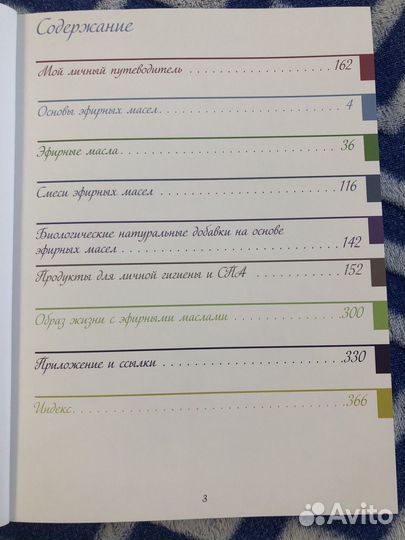 Содержание
Мой личный путеводитель . . . . . . . . . . . . . . . . . . 162
Основы эфирных масел. . . . . . . . . . . . . . . . . . . . . . 4
Эфирные масла. . . . . . . . . . . . . . . . . . . . . . . . . . . 36
Смеси эфирных масел . . . . . . . . . . . . . . . . . . . . . 116
Биологические натуральные добавки на основе
эфирных масел . . . . . . . . . . . . . . . . . . . . . . . . . . 142
Продукты для личной гигиены и СПА . . . . . . . . . . 152
Образ жизни с эфирными маслами . . . . . . . . . . . . .300
Приложение и ссылки . . . . . . . . . . . . . . . . . . . . .330
Индекс. . . . . . . . . . . . . . . . . . . . . . . . . . . . . . . 366
3
Avito